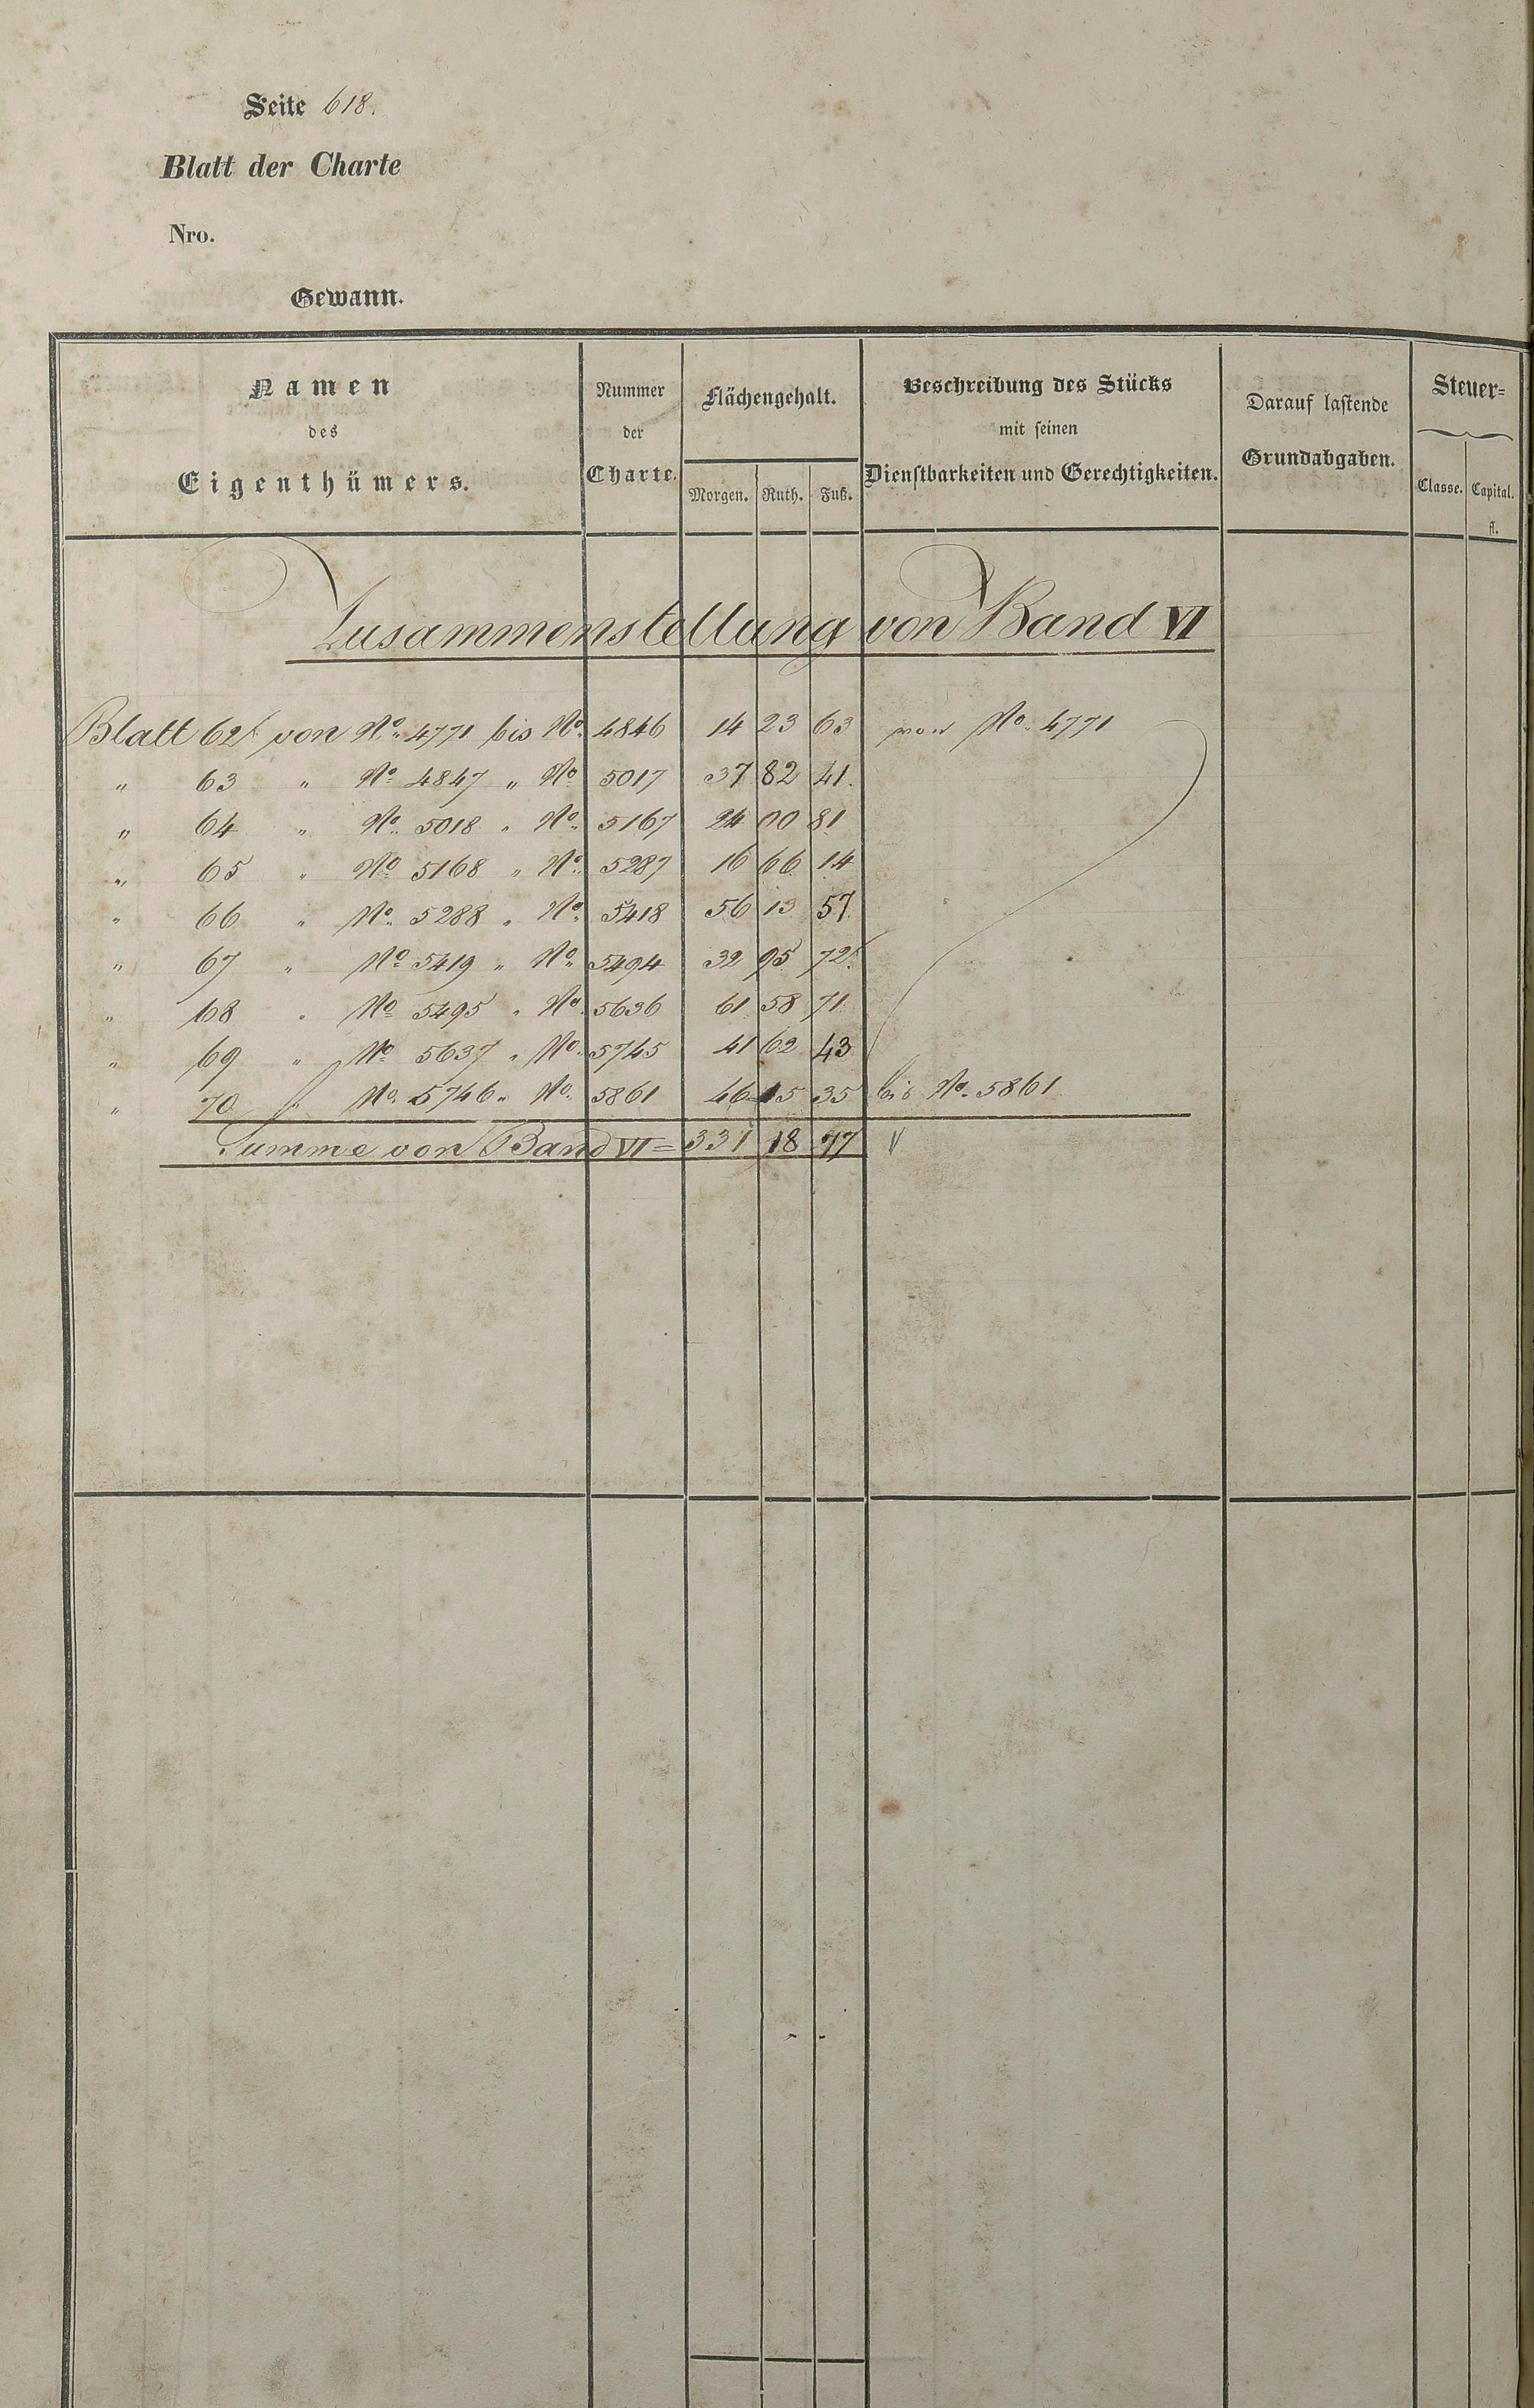 Seite 618.
Blatt der Charte
Nro.
Gewann.
Namen des Eigenthümers.
Nummer der Charte.
Flächengehalt.
Morgen. Ruth. Fuß.
Beschreibung des Stücks mit seinen Dienstbarkeiten und Gerechtigkeiten.
Darauf lastende Grundabgaben.
Steuer=
Classe. Capital.
fl.
Zusammenstellung von Band VI
Blatt 62 von No. 4771 bis No. 4846 14 23 63 von No. 4771
" 63 " No. 4847 " No. 5017 37 82 41.
" 64 " No. 5018 " No. 5167 24 00 81
" 65 " No. 5168 " No. 5287 16 66 14
" 66 " No. 5288 " No. 5418 56 13 57.
" 67 " No. 5419 " No. 5494 32 95 72.
" 68 " No. 5495 " No. 5636 61 58 71.
" 69 " No. 5637 " No. 5745 41 62 43
" 70 " No. 5746 " No. 5861 46 15 35 bis No. 5861
Summe von Band VI = 331 18 77